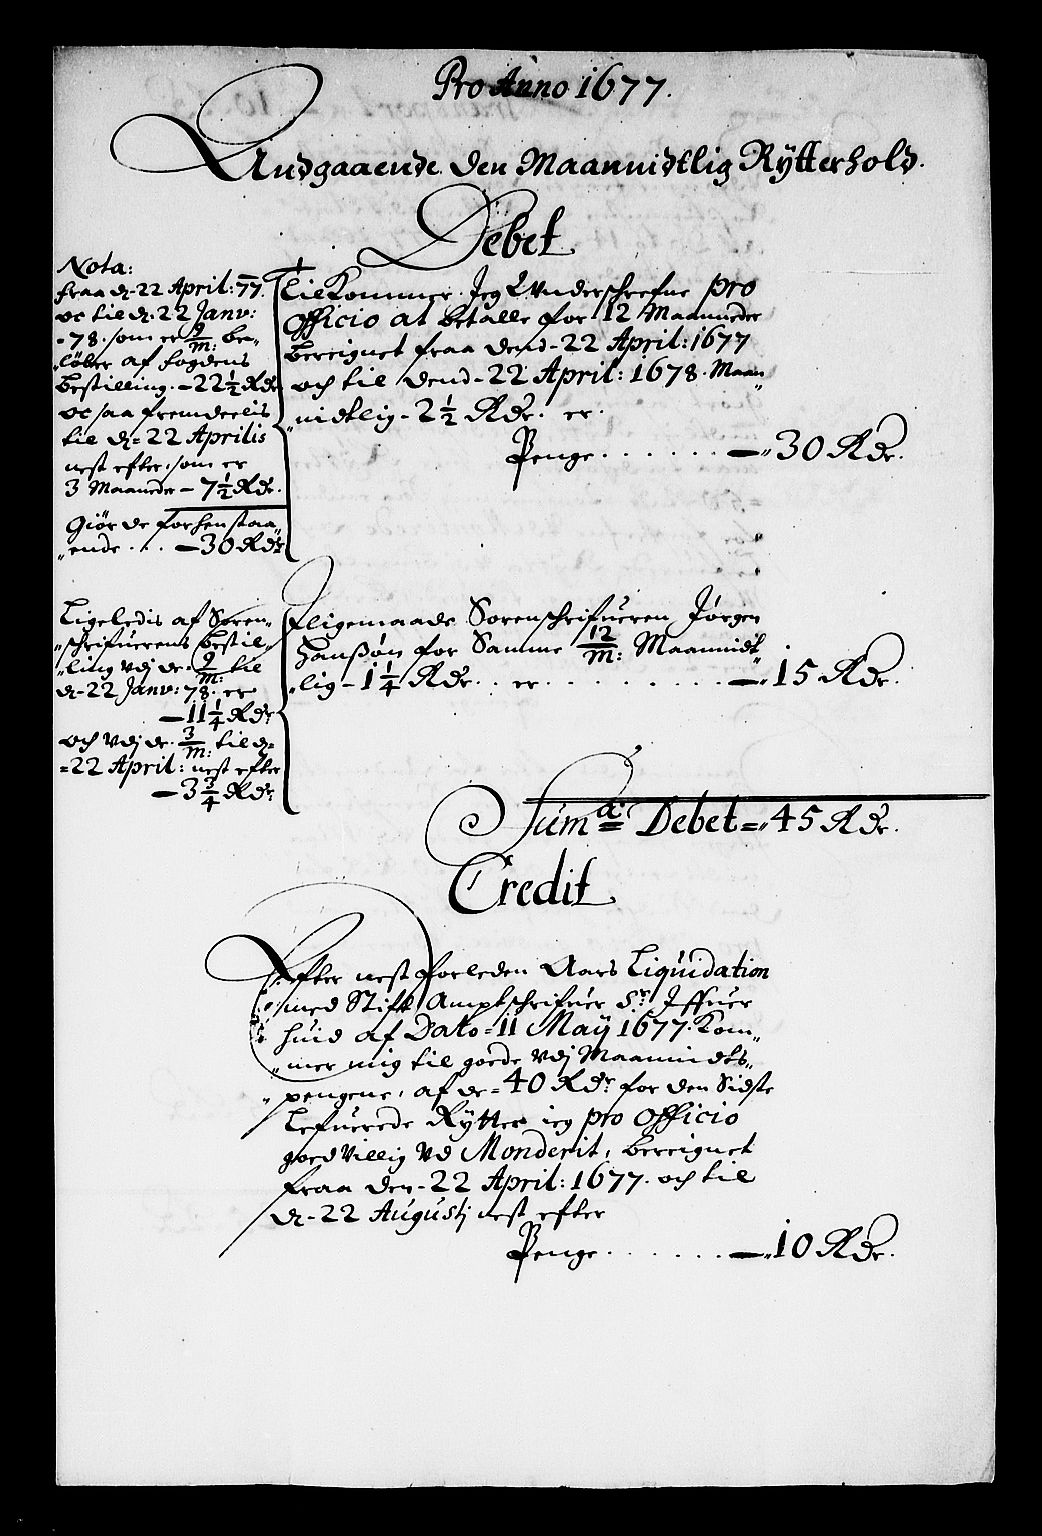 Pro Anno 1677.
Andgaaende den Maannidtlig Rÿtterhold.
Debet
Nota:
fraa d. 22 April: 77.
oc til d. 22 Janv:
78. som er 9/m: be„
„løber af fogdens
bestilling. — 22½ Rdr
oc saa fremdeelis
til d. 22 Aprilis
nest efter. som er
3 Maaneder — 7½ Rdr.
Giør de forhenstaa„
„ende . . . — 30 Rdr
TilKommer Jeg Underschrefne pro
Officio at betalle for 12 Maanneder
bereignet fraa dend 22 April: 1677
och til dend 22 April: 1678. Maan„
„nidtlig 2½ Rdr. er.
Penge . . . . . . — 30 Rdr.
Ligeledis af Soren„
„schrifuerens bestil„
„ling vdj de 9/m: til
d. 22 Janv: 78. er
— 11¼ Rdr
och vdj de 3/m: til d.
22 April: nest efter
— 3¾ Rdr
Iligemaade Sorenschrifueren Jørgen
Hanßøn for Samme 12/m: Maannidt„
„lig 1¼ Rdr. . er . . . . . . . . — 15 Rdr.
Suma: Debet 45 Rdr.
Credit
Efter nest forleden Aars Liquidation
med Stift Amptschrifuer Sr Iffuer
huid af Dato 11 Maÿ 1677. Kom„
„mer mig til goede vdj Maannidts„
„pengene, af de 40 Rdr for den Sidste
Lefuerede Rÿtter ieg pro Officio
goed villig vd Monderit, bereignet
fraa den 22 April: 1677. och til
d. 22 Augustj nest efter
Penge . . . . . . — 10 Rdr.